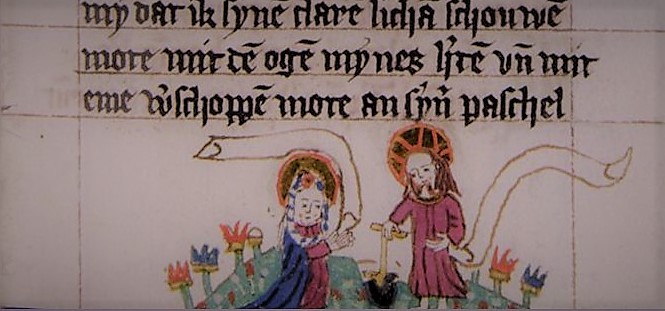 my dat ik synē clare lichā schouwē
mote mit tē ogē mynes h'tē vn̄ mit
eme v'schoppē mote an syn̄ paschel